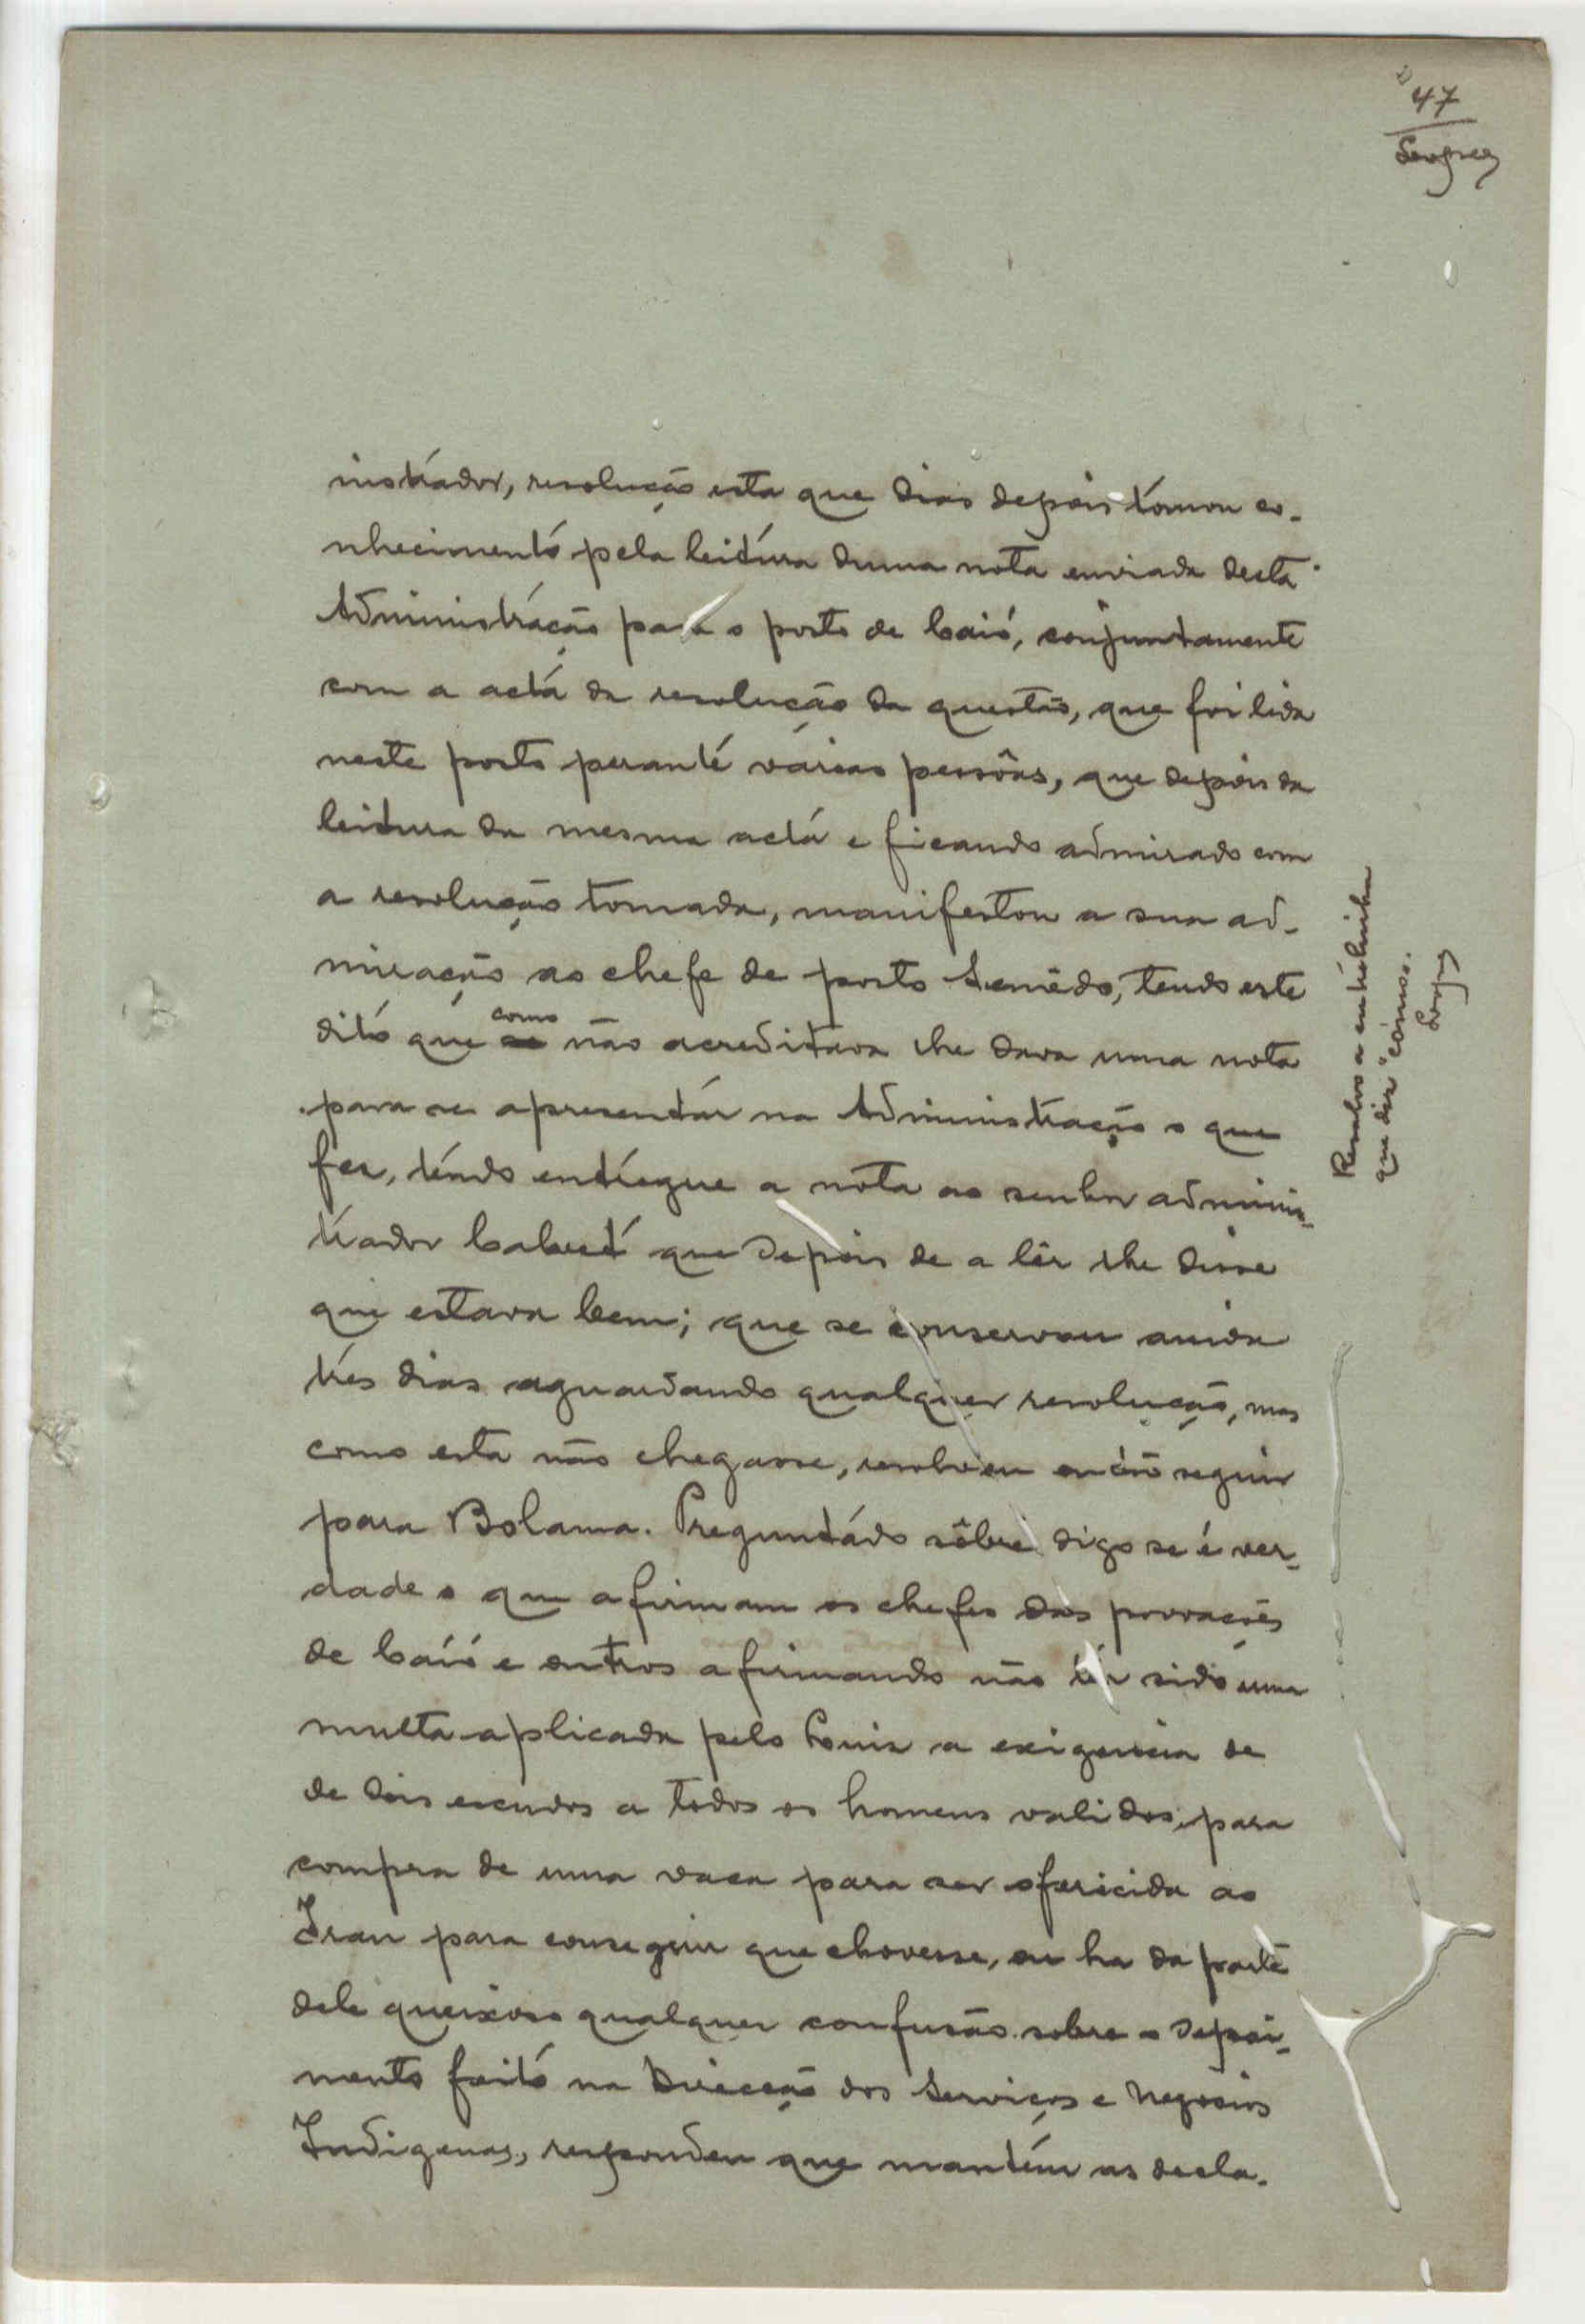 47
nistrador, resolução esta que dias depois tomou co-
nhecimento pela leitura duma nota enviada desta
Administração para o posto de Caió, conjuntamente
com a acta da resolução da questão, que foi lida
neste posto perante várias pessôas, que depois da
leitura da mesma acta e ficando admirado com
a resolução tomada, manifestou a sua ad-
miração ao chefe de posto Semêdo, tendo este
dito que como não acreditava lhe dava uma nota
para se apresentar na Administração o que
fez, tendo entregue a nota ao senhor adminis-
trador que depois de a lêr lhe disse
que estava bem; que se conservou ainda
três dias aguardando qualquer resolução, mas
como esta não chegasse, resolveu então seguir
para Bolama. Preguntado sôbre digo se é ver-
dade o que afirmam os chefes das povoações
de Caió e outros afirmando não têr sido uma
multa aplicada pelo a exigencia de
de dois escudos a todos os homens validos, para
compra de uma vaca para ser oferecida ao
Iran para conseguir que chovesse, ou ha da parte
dele queixoso qualquer confusão sobre o depoi-
mento feito na Direcção dos Serviços e Negocios
Indigenas, respondeu que mantém as decla-
Resalvo a entrelinha
que diz "como".